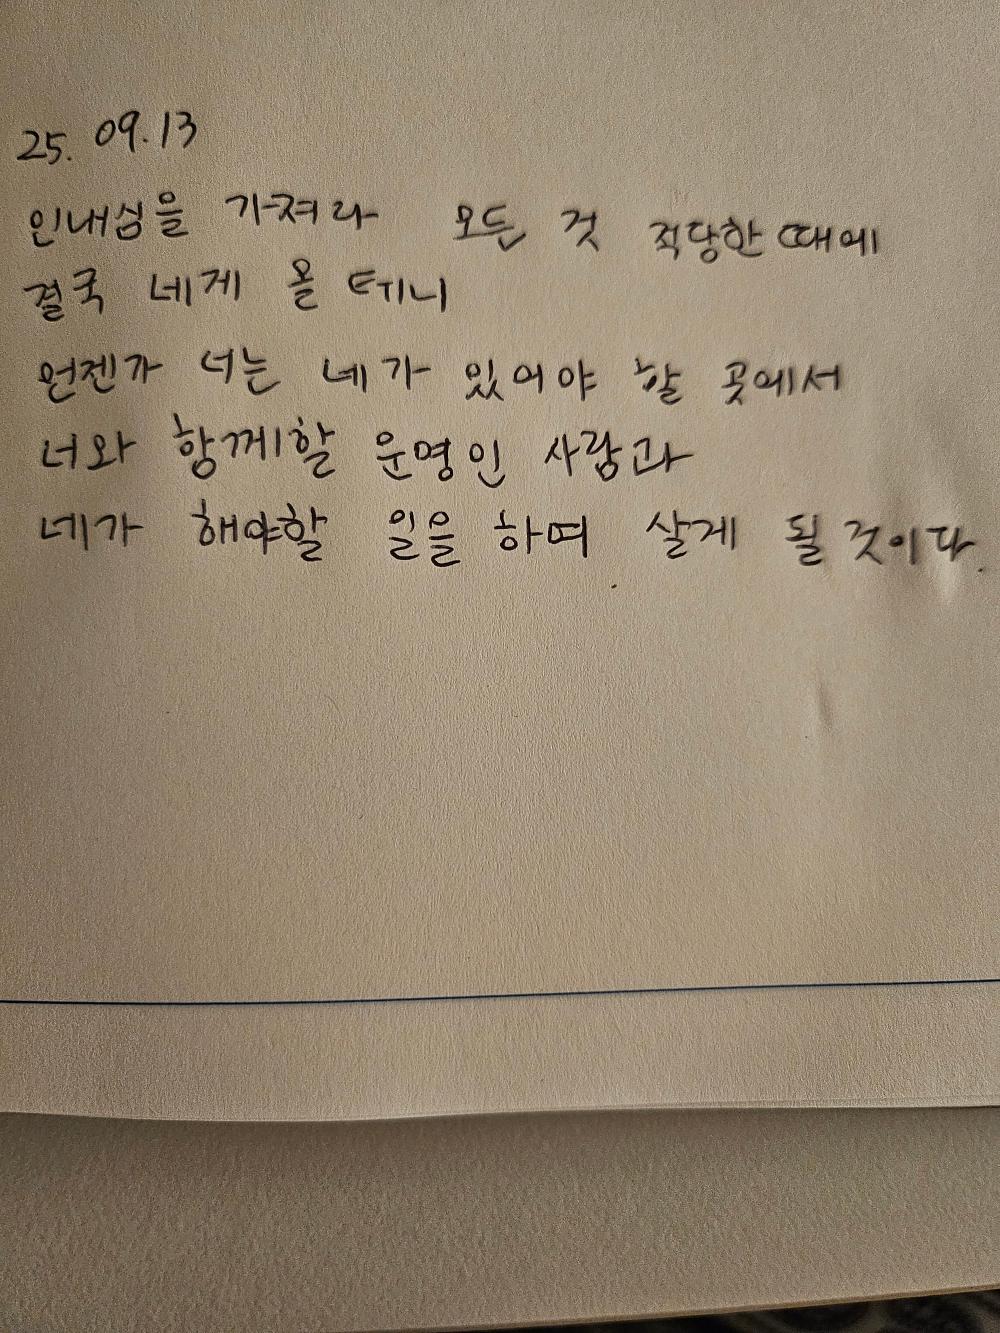 25. 09. 13
인내심을 가져라 모든 것 적당한 때에
결국 네게 올 테니
언젠가 너는 네가 있어야 할 곳에서
너와 함께할 운명인 사람과
네가 해야할 일을 하며 살게 될 것이다.